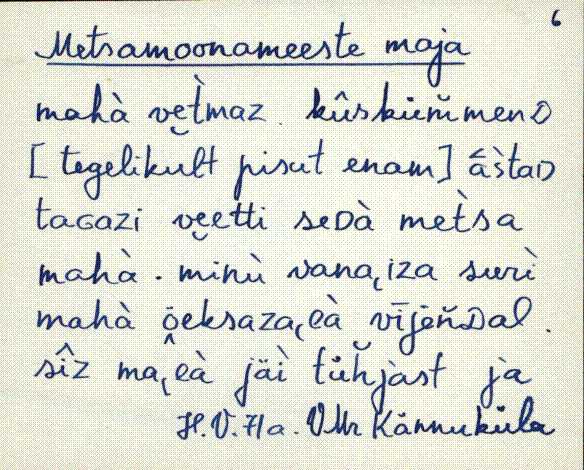 6
Metsamoonameeste maja
mahà ve̮t̀maz. kûsküm̆menD
[tegelikult pisut enam] âs̀taD
taGazi ve̮etti seDà met̀sa
mahà. minù vana̡iza surì
mahà ö̭eksaza̡eà v̮ījen̆Dal.
sîz ma̡eà jäì tüh̆jast jà
H.V. 71a. VMr Kännuküla